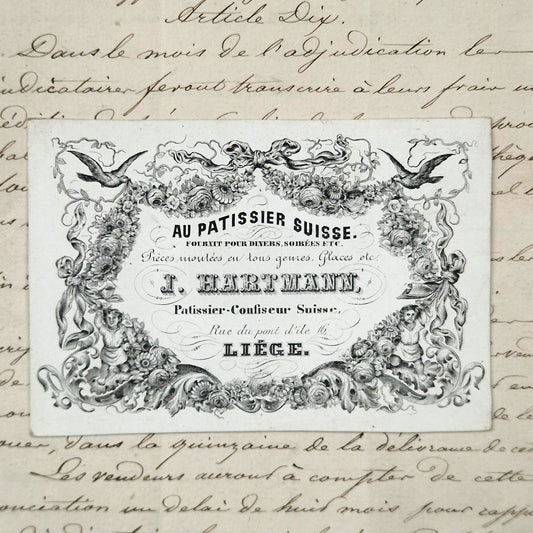 Article Dix.
Dans le mois de l'adjudication les
adjudicataires feront transcrire à leurs frais
AU PATISSIER SUISSE.
FOURNIT POUR DINERS, SOIRÉES ETC.
Pièces montées en tous genres. Glaces etc.
J. HARTMANN,
Patissier-Confiseur Suisse,
Rue du pont d'ile
LIÉGE.
dans la quinzaine de la délivrance de ces
Les vendeurs auront à compter de cette
un delai de huit mois pour